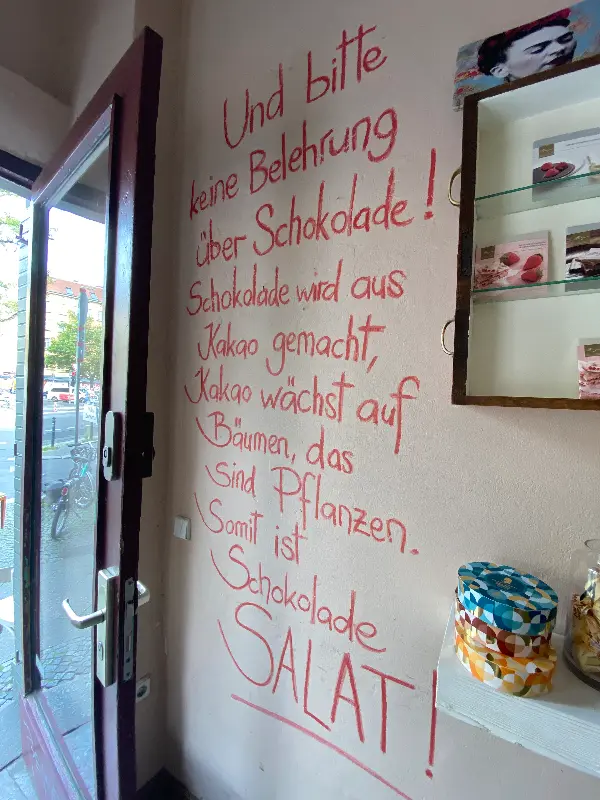 Und bitte
keine Belehrung
über Schokolade!
Schokolade wird aus
Kakao gemacht,
Kakao wächst auf
Bäumen, das
sind Pflanzen.
Somit ist
Schokolade
SALAT!